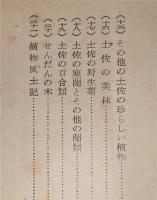 (十五) その他の土佐の珍らしい植物
(十六) 土佐の美林
(十七) 土佐の野生菊
(十八) 土佐の百合類
(十九) 土佐の寒蘭とその他の蘭類
(二十) せんだんの木
(二十一) 植物風土記